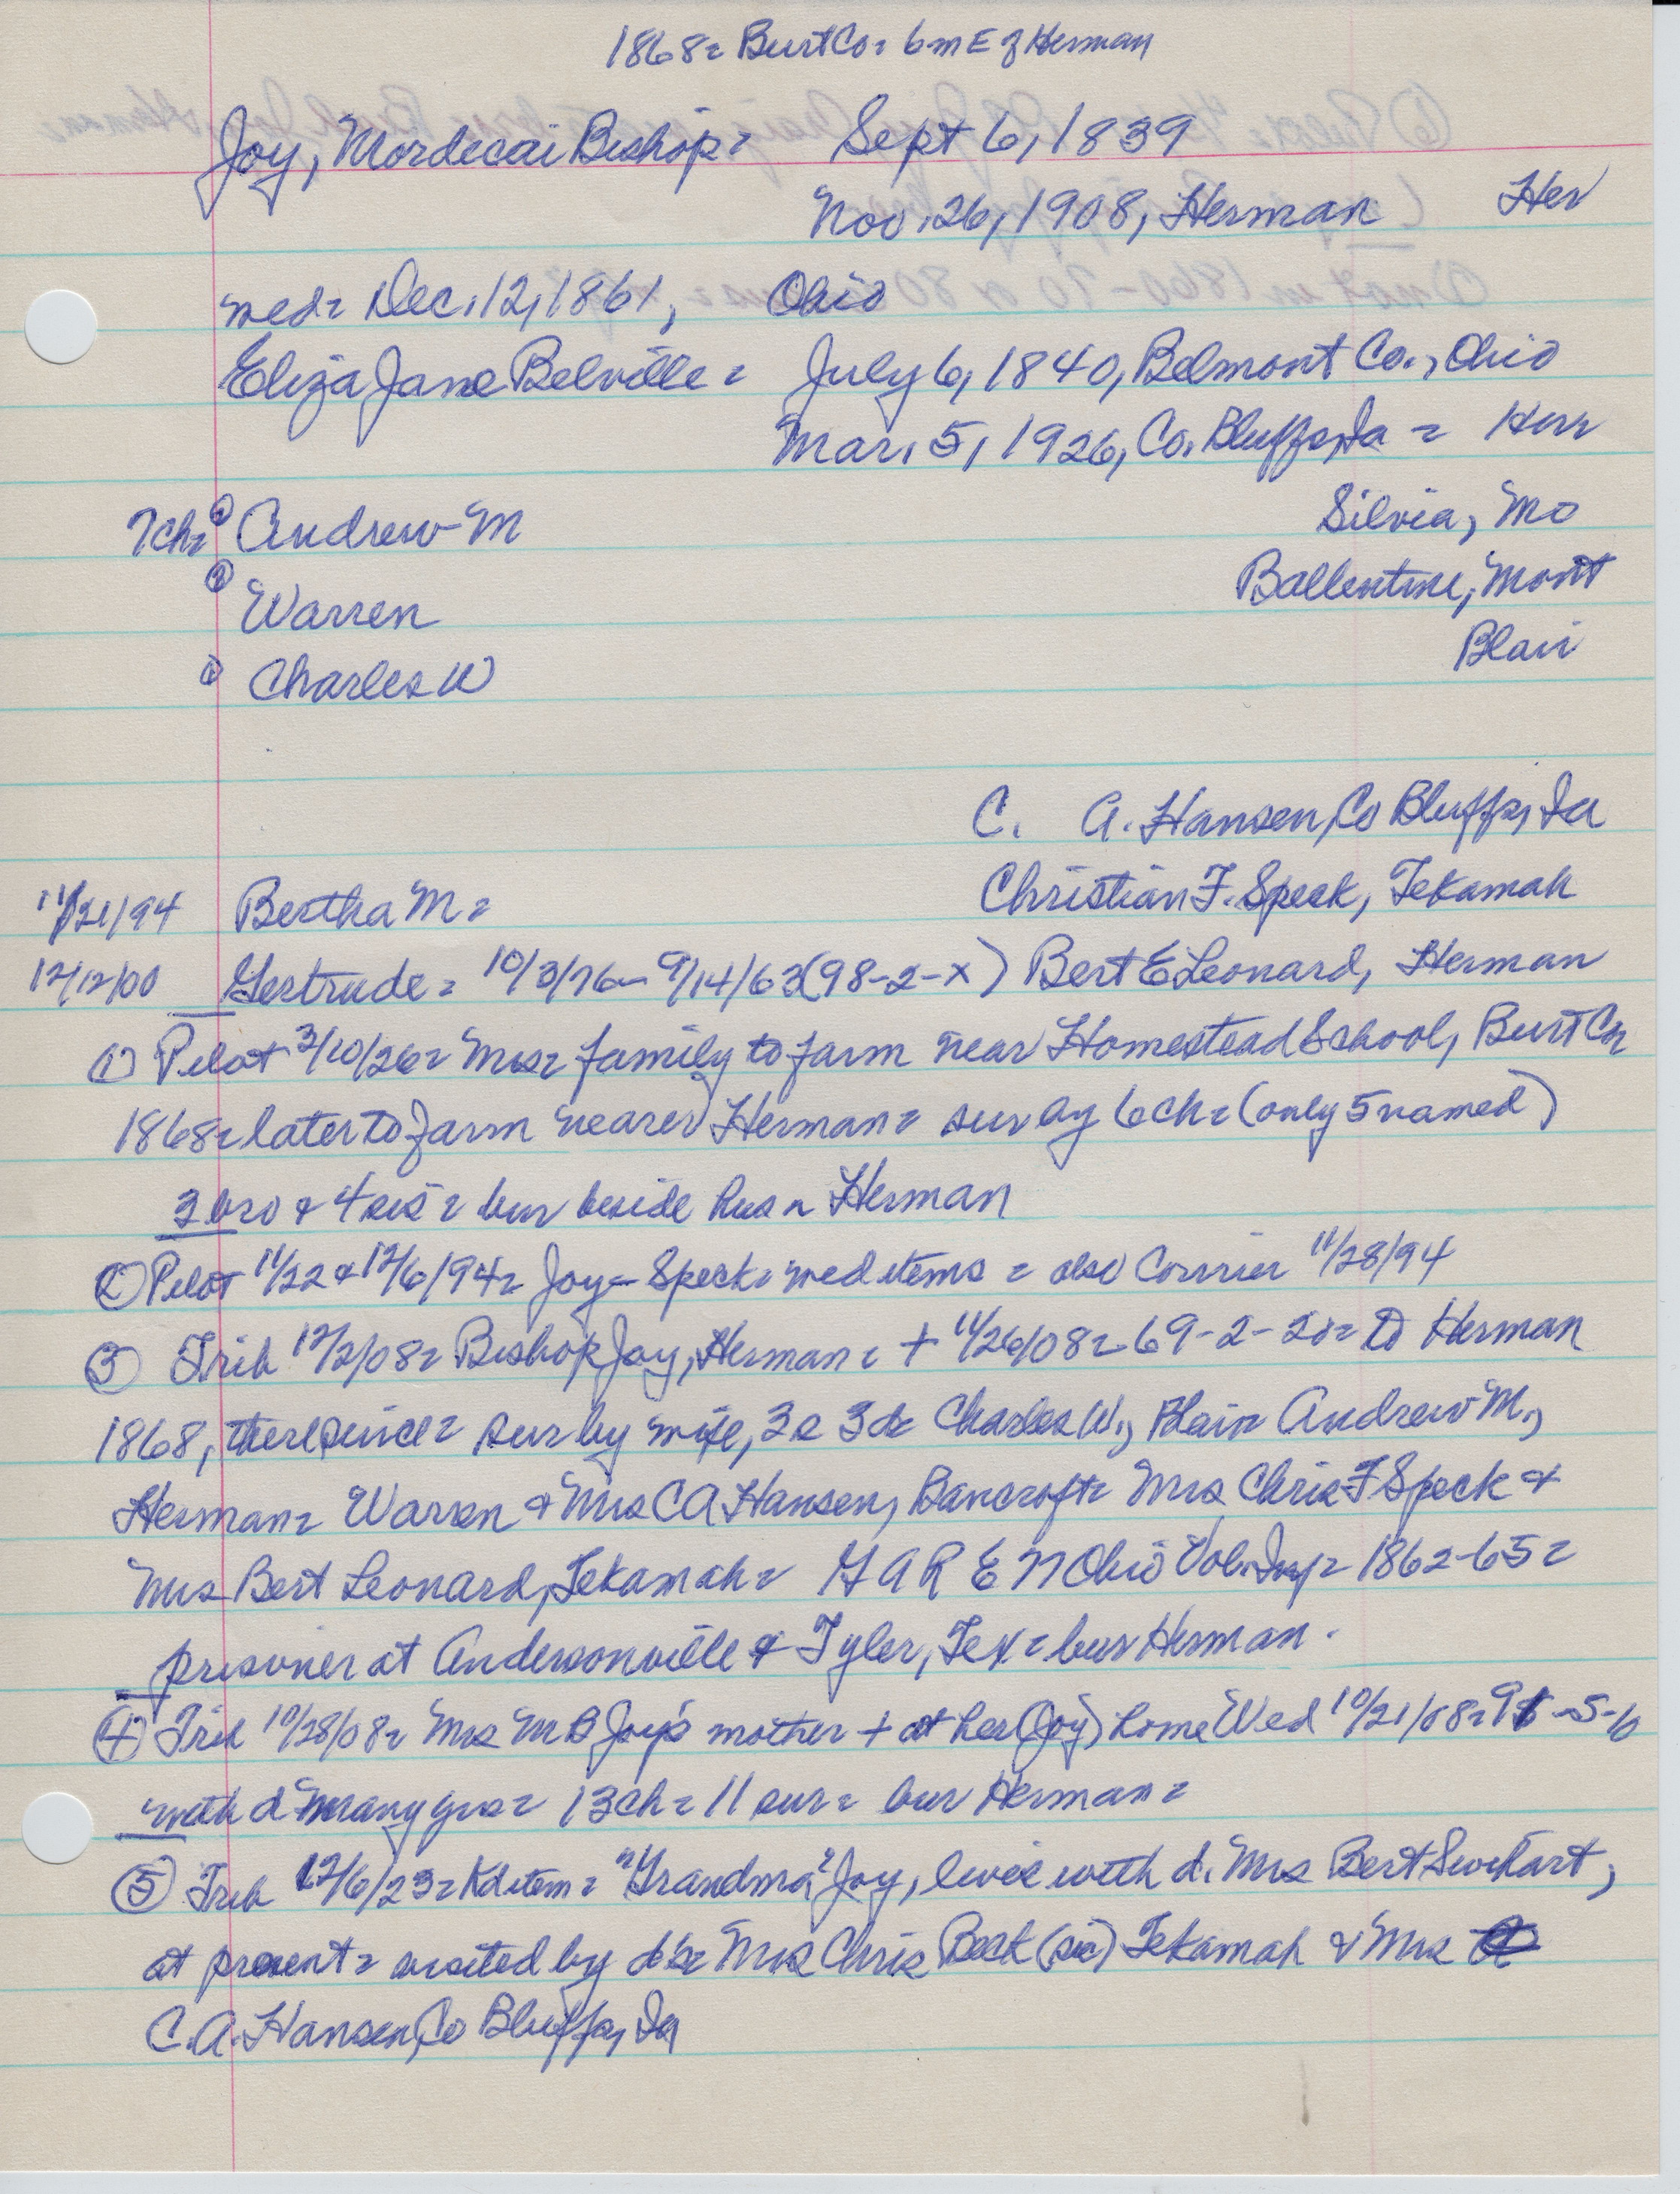 1868= Burt Co= 6 m E of Herman
Joy, Mordecai Bishop= Sept 6, 1839
Nov. 26, 1908, Herman Her
wed= Dec. 12, 1861, Ohio
Eliza Jane Belville= July 6, 1840, Belmont Co., Ohio
Mar. 5, 1926, Co. Bluffs, Ia = Her
7 ch= Andrew M Silvia, Mo
Warren Ballentine, Mont
Charles W Blair
C. A. Hansen, Co Bluffs, Ia
Christian F. Speck, Tekamah
11/21/94 Bertha M=
12/12/00 Gertrude= 10/3/76- 9/14/63 (98-2-x) Bert E Leonard, Herman
① Pilot 3/10/26= Mrs= family to farm near Homestead School, Burt Co
1868= later to farm nearer Herman= sur by 6 ch= (only 5 named)
3 bro & 4 sis= bur beside hus n Herman
② Pilot 11/22 & 12/6/94= Joy-Speck= wed items = also Courier 11/28/94
③ Trib 12/2/08= Bishop Joy, Herman= + 11/26/08= 69-2-20= to Herman
1868, there since= sur by wife, 3 s 3 d= Charles W., Blair Andrew M.,
Herman= Warren & Mrs C A Hansen, Bancroft= Mrs Chris F Speck &
Mrs Bert Leonard, Tekamah= G A R E 77 Ohio Vol. Inf= 1862-65=
prisoner at Andersonville & Tyler, Tex= bur Herman.
④ Trib 10/28/08= Mrs M B Joy's mother + at her (Joy) home Wed 10/21/08= -5-10
with d many yrs= 13 ch= 11 sur= bur Herman=
⑤ Trib 12/6/23= Kd item= "Grandma" Joy, lives with d. Mrs Bert Swihart,
at present= visited by d's= Mrs Chris Beck (sic) Tekamah & Mrs
C. A. Hansen, Co Bluffs, Ia